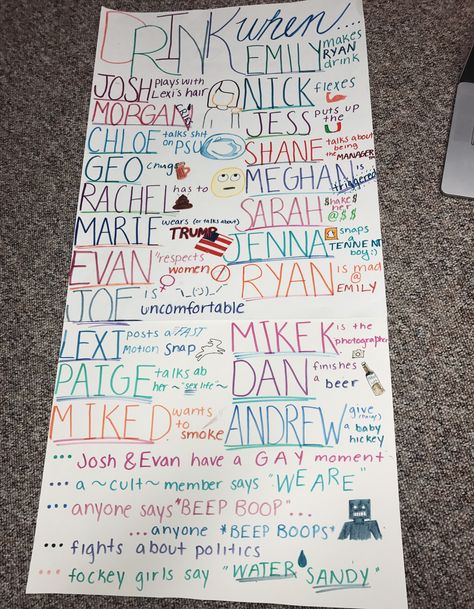 DRINK when...
EMILY makes RYAN drink
JOSH plays with Lexi's hair
NICK flexes
MORGAN
JESS puts up the U
CHLOE talks shit on PSU
SHANE talks about being the MANAGER
GEO chugs
MEGHAN is triggered
RACHEL has to
SARAH shakes her @$$
MARIE wears (or talks about) TRUMP
JENNA snaps a TENNENT boy:)
EVAN "respects women"
RYAN is mad @ EMILY
JOE is ¯\_(:)_/¯ uncomfortable
LEXI posts a FAST motion snap
MIKE K is the photographer
PAIGE talks ab her ~"sex life"~
DAN finishes a beer
MIKE D. wants to smoke
ANDREW give (tries) a baby hickey
... Josh & Evan have a GAY moment
... a ~cult~ member says "WE ARE"
... anyone says *BEEP BOOP"...
... anyone *BEEP BOOPS*
... fights about politics
... fockey girls say "WATER SANDY"